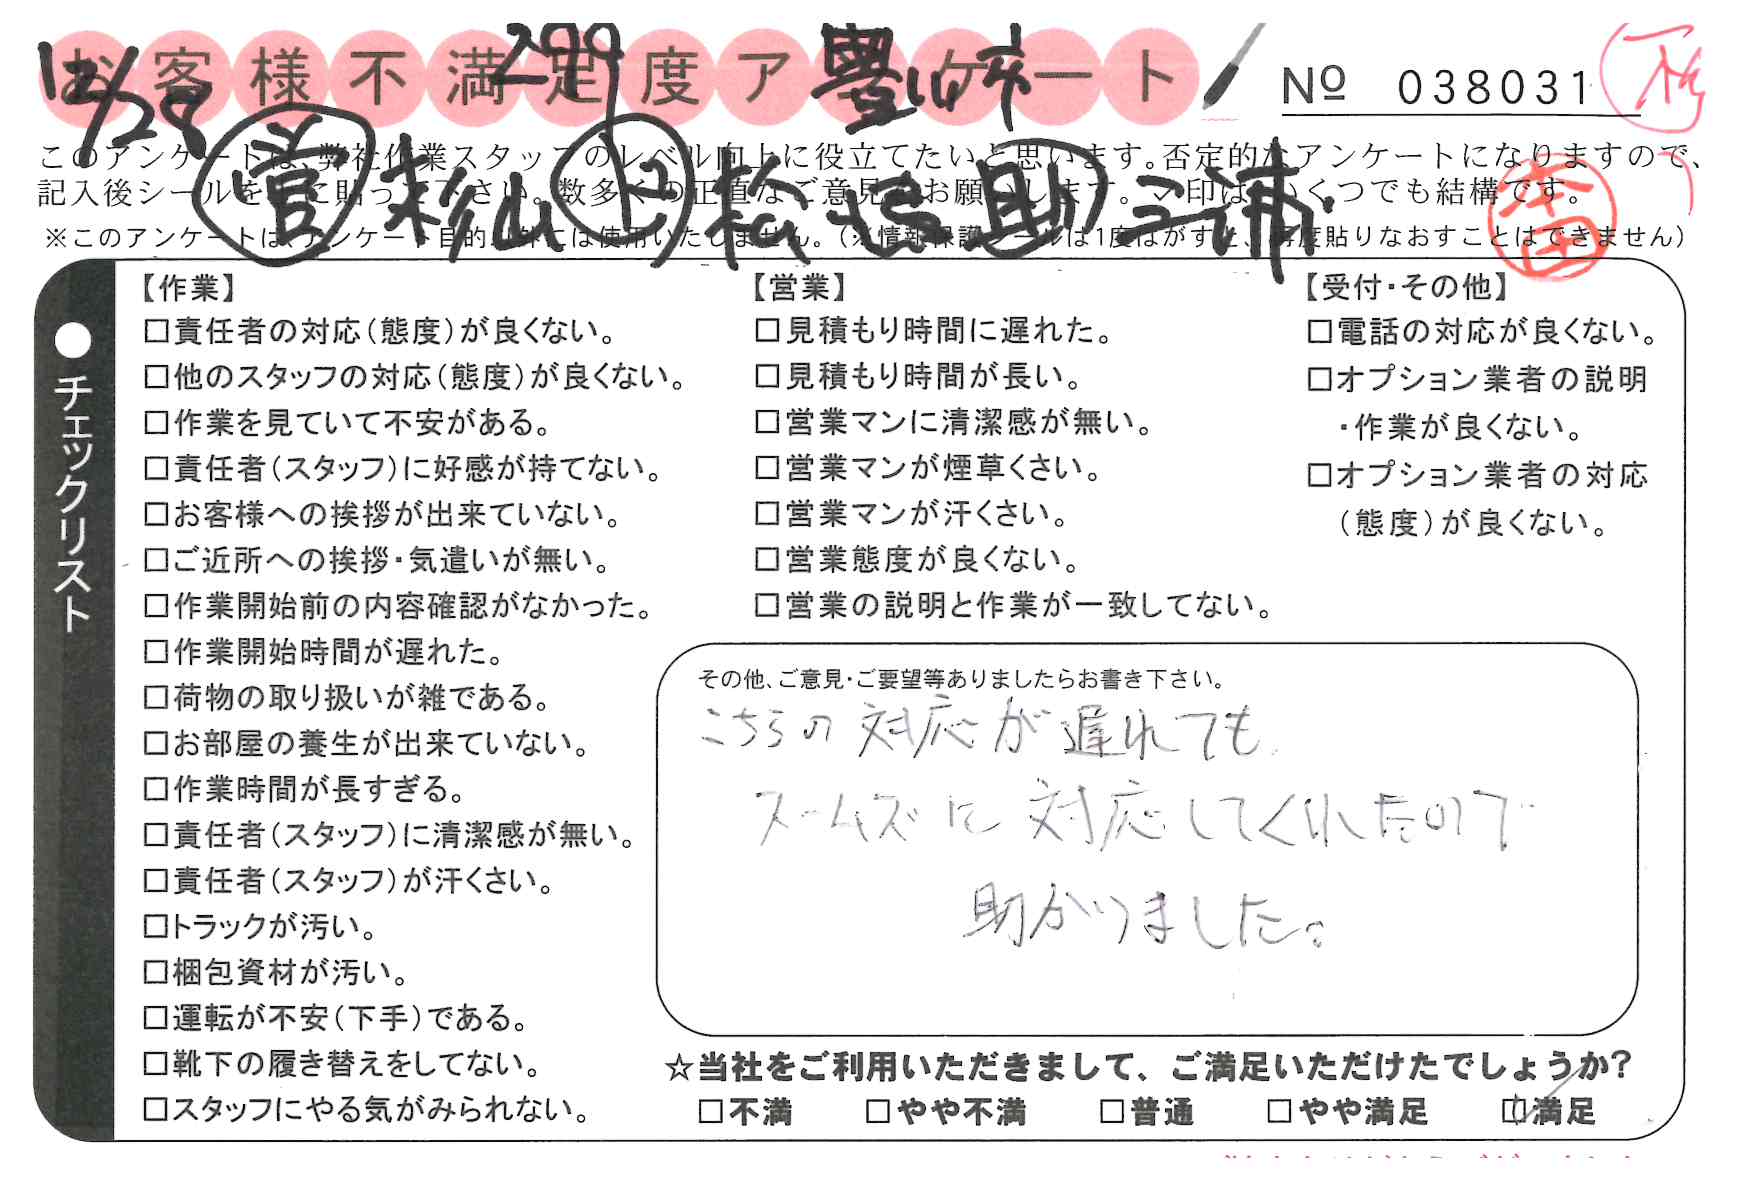 お客様不満足度アンケート
№ 038031
12/28 299 豊山市
このアンケートは、弊社作業スタッフのレベル向上に役立てたいと思います。否定的なアンケートになりますので、
記入後シールを上に貼って下さい。数多くの正直なご意見をお願いします。✓印は、いくつでも結構です。
※このアンケートは、アンケート目的以外には使用いたしません。(※情報保護シールは1度はがすと、再度貼りなおすことはできません)
営 杉山 上 松浩 助 三浦
本田
●チェックリスト
【作業】
□責任者の対応(態度)が良くない。
□他のスタッフの対応(態度)が良くない。
□作業を見ていて不安がある。
□責任者(スタッフ)に好感が持てない。
□お客様への挨拶が出来ていない。
□ご近所への挨拶・気遣いが無い。
□作業開始前の内容確認がなかった。
□作業開始時間が遅れた。
□荷物の取り扱いが雑である。
□お部屋の養生が出来ていない。
□作業時間が長すぎる。
□責任者(スタッフ)に清潔感が無い。
□責任者(スタッフ)が汗くさい。
□トラックが汚い。
□梱包資材が汚い。
□運転が不安(下手)である。
□靴下の履き替えをしてない。
□スタッフにやる気がみられない。
【営業】
□見積もり時間に遅れた。
□見積もり時間が長い。
□営業マンに清潔感が無い。
□営業マンが煙草くさい。
□営業マンが汗くさい。
□営業態度が良くない。
□営業の説明と作業が一致してない。
【受付・その他】
□電話の対応が良くない。
□オプション業者の説明
・作業が良くない。
□オプション業者の対応
(態度)が良くない。
その他、ご意見・ご要望等ありましたらお書き下さい。
こちらの対応が遅れても
スームズに対応してくれたので
助かりました。
☆当社をご利用いただきまして、ご満足いただけたでしょうか?
□不満 □やや不満 □普通 □やや満足 ☑満足